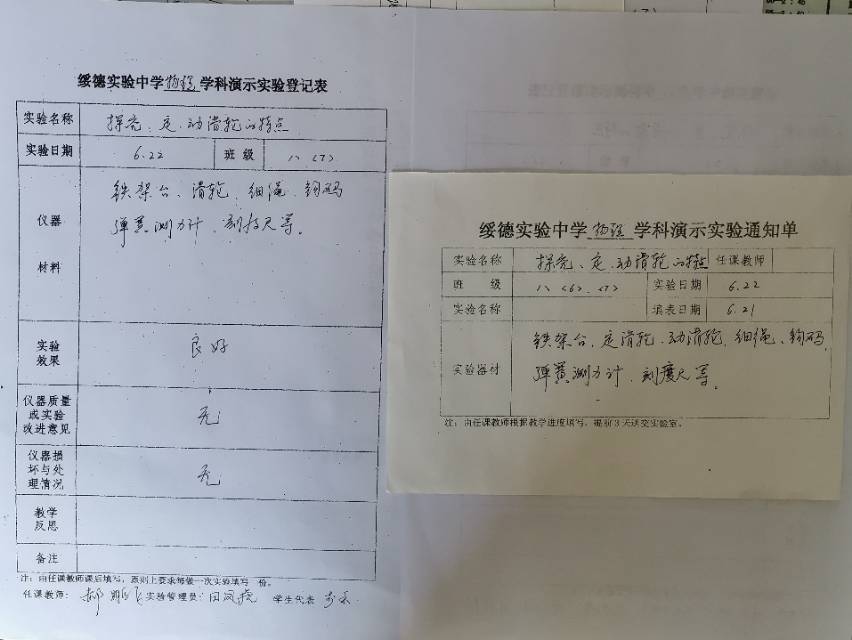 绥德实验中学物理学科演示实验登记表
实验名称 探究、定、动滑轮的特点
实验日期 6.22 班级 八（7）
仪器材料 铁架台、滑轮、细绳、钩码
弹簧测力计、刻度尺等。
实验效果 良好
仪器质量或实验改进意见 无
仪器损坏与处理情况 无
教学反思
备注
注：由任课教师课后填写，原则上要求每做一次实验填写一份。
任课教师： 实验管理员： 学生代表
绥德实验中学物理学科演示实验通知单
实验名称 探究、定、动滑轮的特点 任课教师
班级 八（6）、（7） 实验日期 6.22
实验名称 填表日期 6.21
实验器材 铁架台、定滑轮、动滑轮、细绳、钩码
弹簧测力计、刻度尺等。
注：由任课教师根据教学进度填写，提前3天送交实验室。